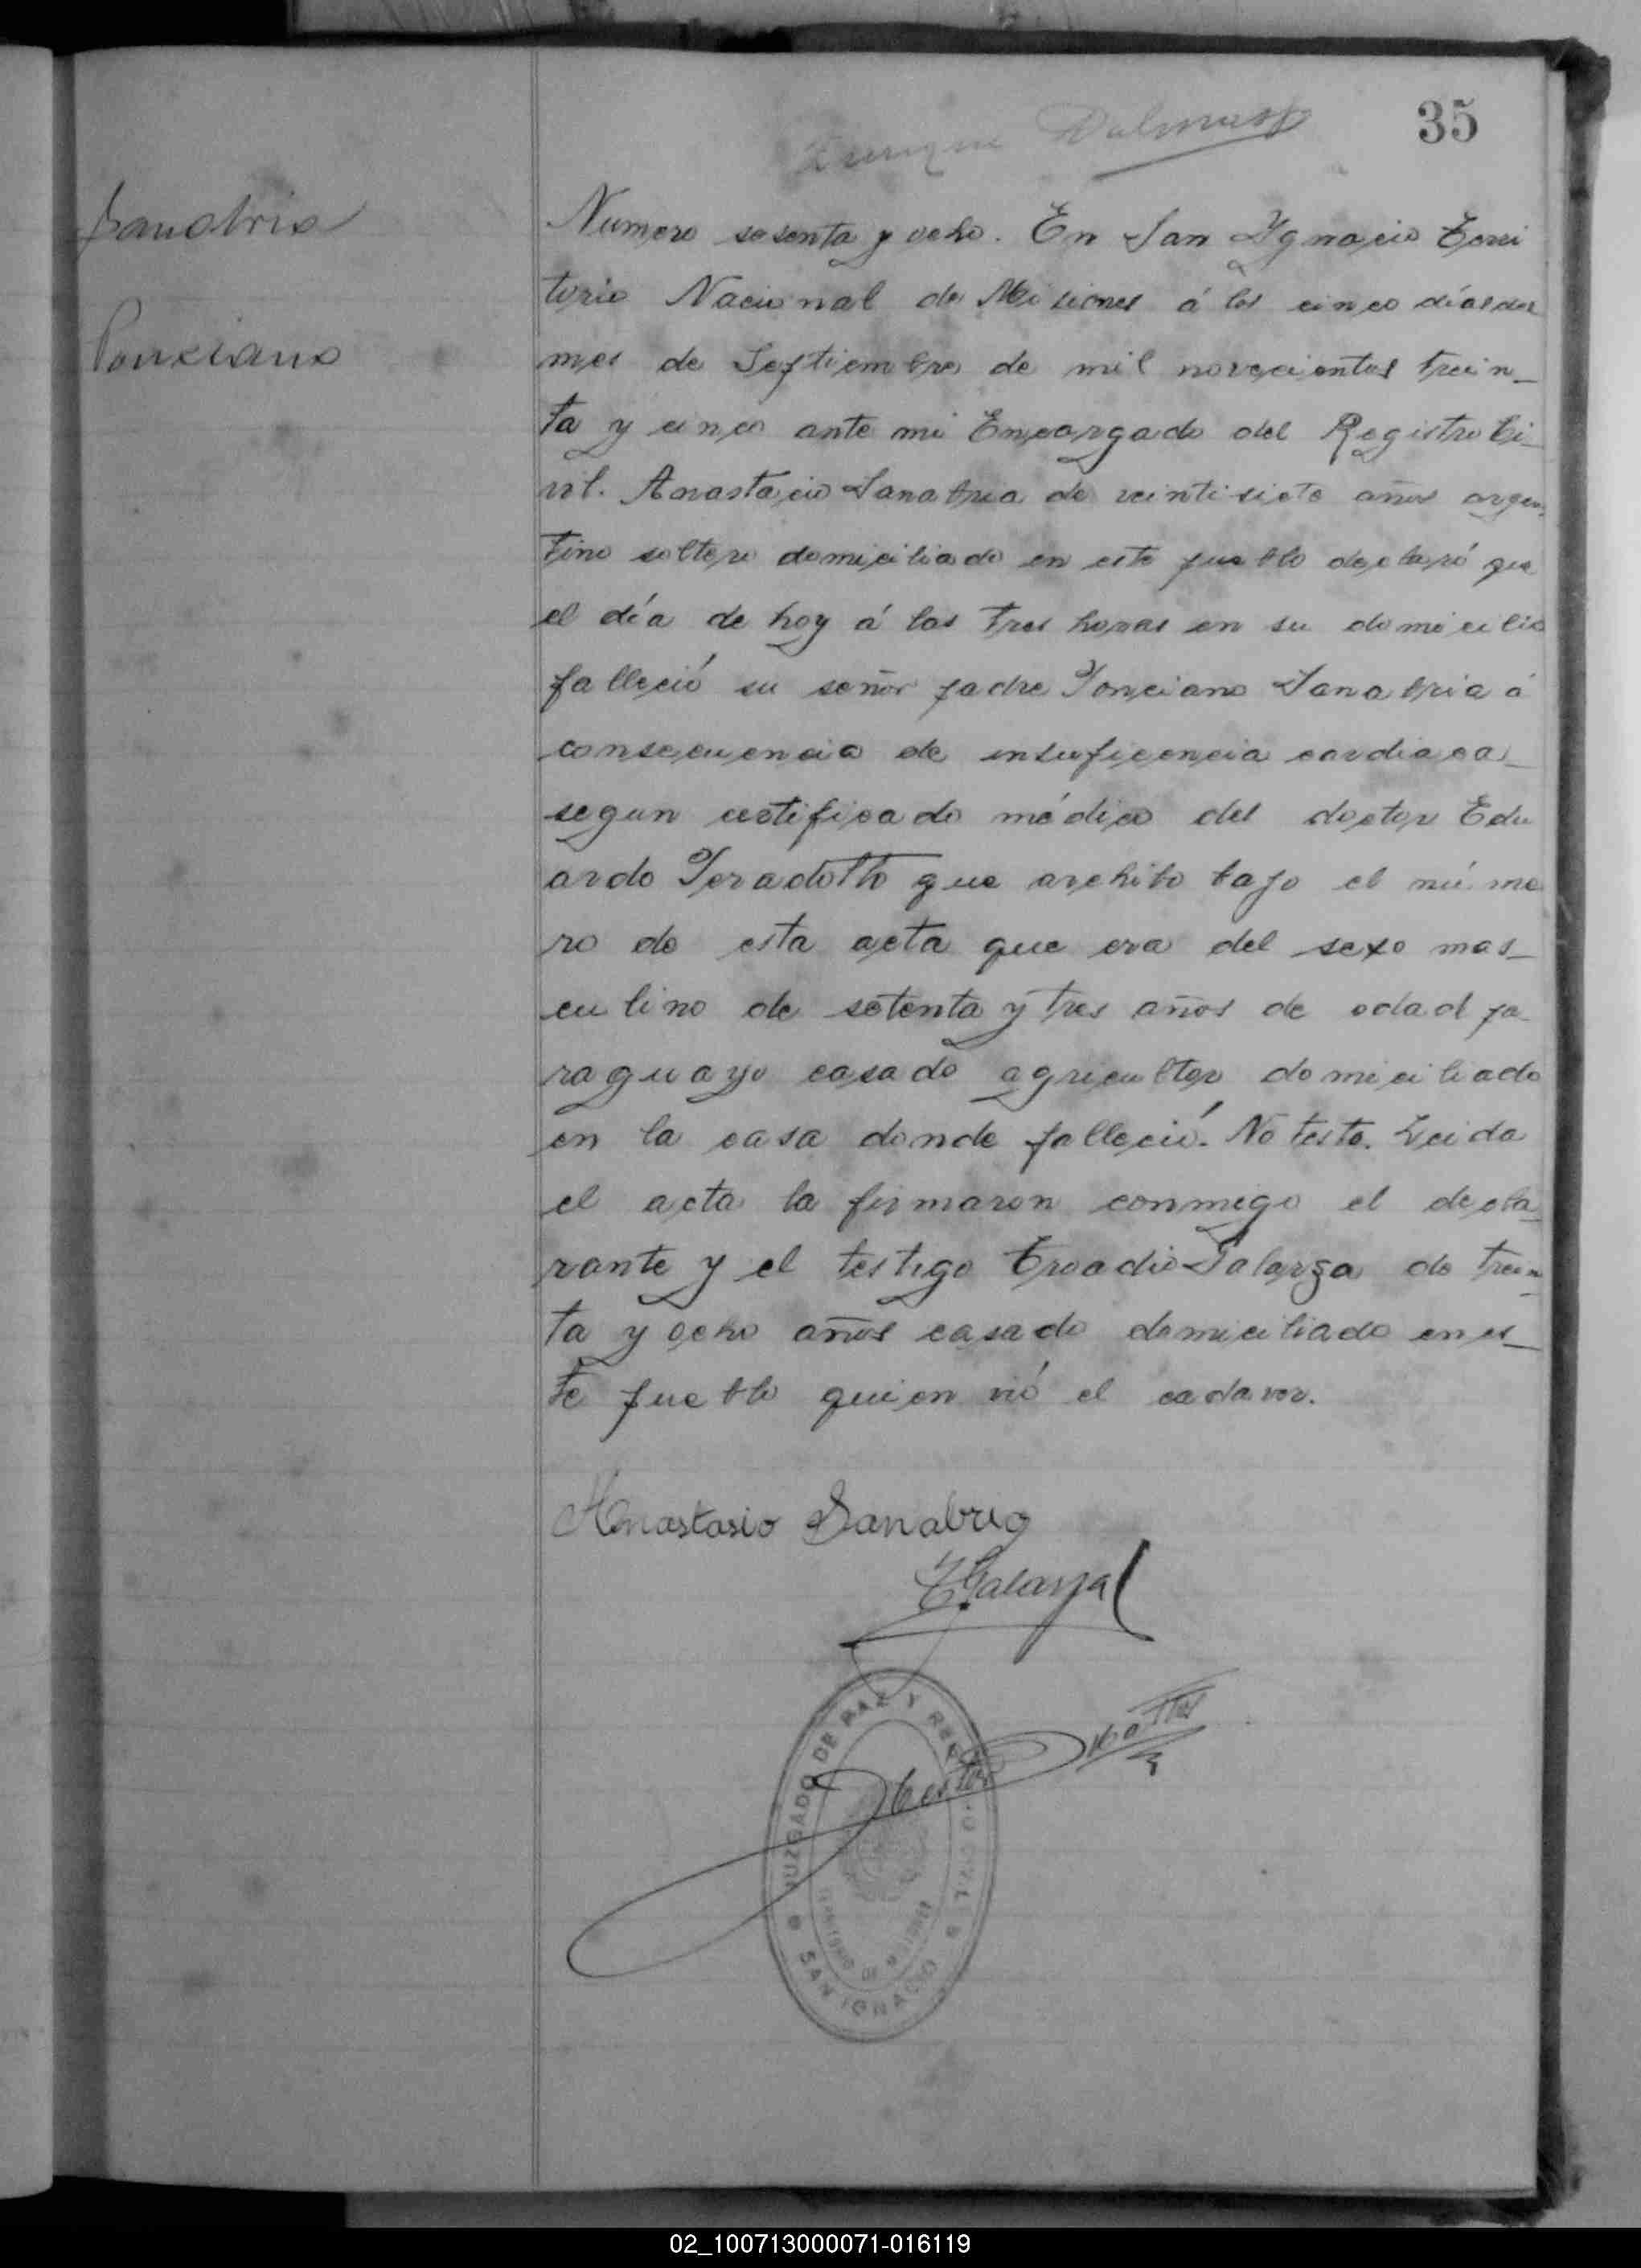 35
Enrique Dalmass
Sanabria
Ponciano
Numero sesenta y ocho. En San Ygnacio Terri
torio Nacional de Misiones á los cinco días del
mes de Septiembre de mil novecientos trein_
ta y cinco ante mi Encargado del Registro Ci_
vil. Anastacio Sanabria de veintisiete años argen_
tino soltero domiciliado en este pueblo declaró que
el día de hoy á las tres horas en su domicilio
falleció su señor padre Ponciano Sanabria á
consecuencia de insuficencia cardiaca_
segun certificado médico del doctor Edu
ardo Peradotto que archibo bajo el núme
ro de esta acta que era del sexo mas_
culino de setenta y tres años de edad pa_
raguayo casado agricultor domiciliado
en la casa donde falleció. No testo. Leida
el acta la firmaron conmigo el decla_
rante y el testigo Troadio Galarza de trein_
ta y ocho años casado domiciliado en es_
te pueblo quien vió el cadaver.
Anastasio Sanabria
T Galarza
JUZGADO DE PAZ Y REGISTRO CIVIL
TERRITORIO DE MISIONES
SAN IGNACIO
02_100713000071-016119